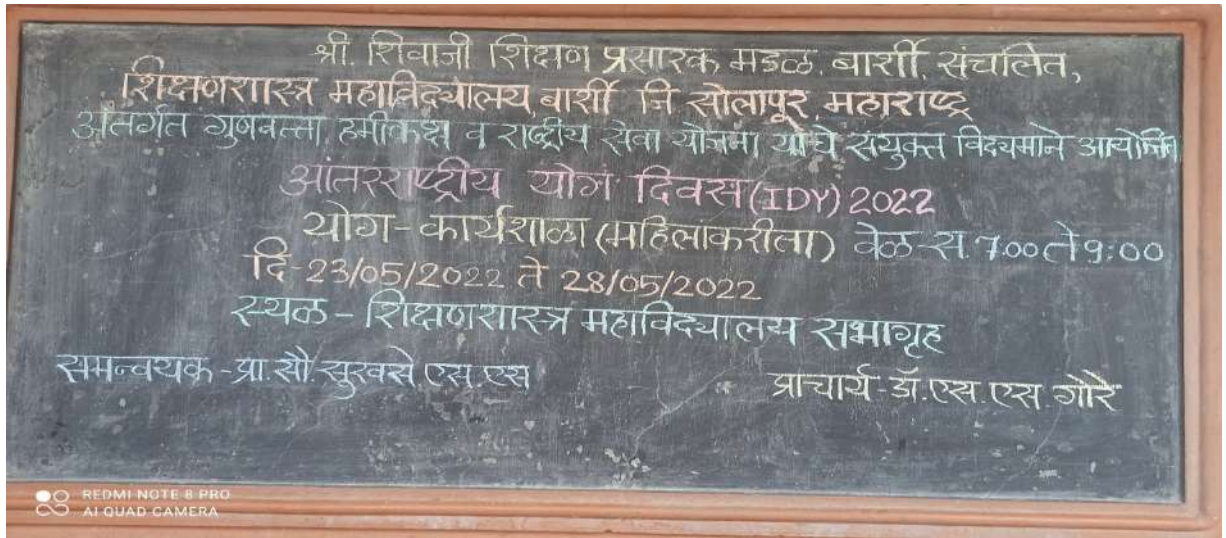 श्री. शिवाजी शिक्षण प्रसारक मंडळ, बार्शी. संचलित,
शिक्षणशास्त्र महाविद्यालय, बार्शी जि सोलापूर, महाराष्ट्र
अंतर्गत गुणवत्ता हमीकक्ष व राष्ट्रीय सेवा योजना यांचे संयुक्त विद्यमाने आयोजित
आंतरराष्ट्रीय योग दिवस (IDY) 2022
योग-कार्यशाळा (महिलांकरीता) वेळ-स. 7.00 ते 9:00
दि-23/05/2022 ते 28/05/2022
स्थळ - शिक्षणशास्त्र महाविद्यालय सभागृह
समन्वयक -प्रा.सौ.सुरवसे एस.एस
प्राचार्य-डॉ.एस.एस.गोरे
REDMI NOTE 8 PRO
AI QUAD CAMERA